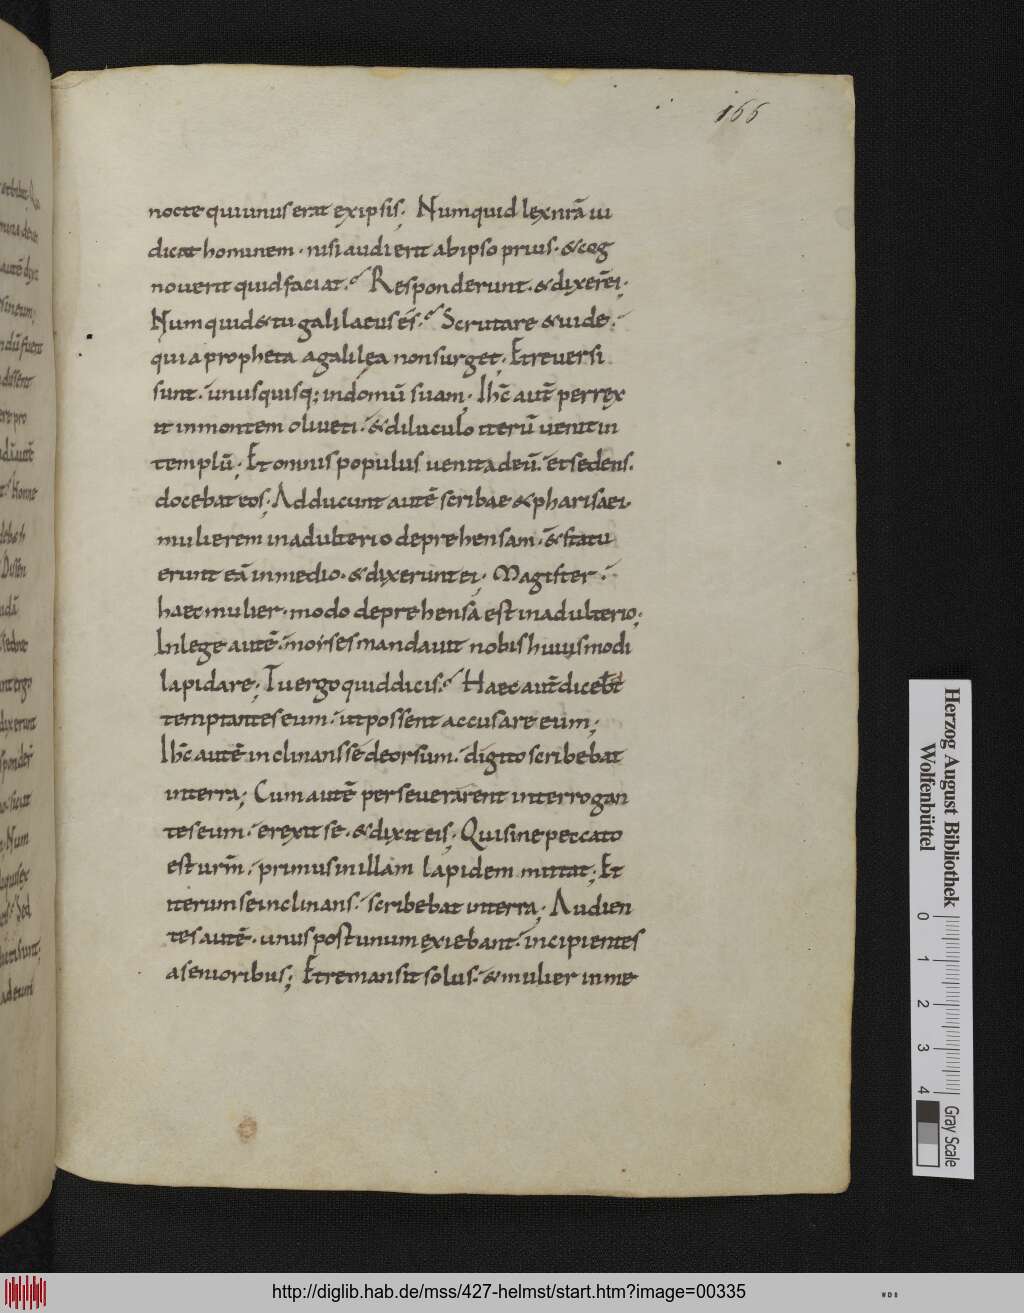 166
nocte qui unus erat ex ipsis. Numquid lex nrā iu
dicat hominem. nisi audierit ab ipso prius. & cog
noverit quid faciat. Responderunt. & dixer̄ ei.
Numquid & tu galilaeus ēs. Scrutare & vide.
quia propheta a galilęa non surget. Et reversi
sunt. unusquisq; in domū suam. Ihc̄ aut̄ perrex
it in montem oliveti. & diluculo iterū venit in
templū. Et omnis populus venit ad eū. et sedens.
docebat eos. Adducunt autē scribae & pharisaei.
mulierem in adulterio deprehensam. & statu
erunt eā in medio. & dixerunt ei. Magister.
haec mulier. modo deprehensa est in adulterio.
In lege autē. moises mandavit nobis huiusmodi
lapidare. Tu ergo quid dicis. Haec aut̄ dicebt
temptantes eum. ut possent accusare eum.
Ihc̄ autē inclinans se deorsum. digito scribebat
in terra. Cum autē perseverarent interrogan
tes eum. erexit se. & dixit eis. Qui sine peccato
est urm̄. primus in illam lapidem mittat. Et
iterum se inclinans. scribebat in terra. Audien
tes autē. unus post unum exiebant. incipientes
a senioribus. Et remansit solus. & mulier in me
Herzog August Bibliothek
Wolfenbüttel
0 1 2 3 4
Gray Scale
http://diglib.hab.de/mss/427-helmst/start.htm?image=00335